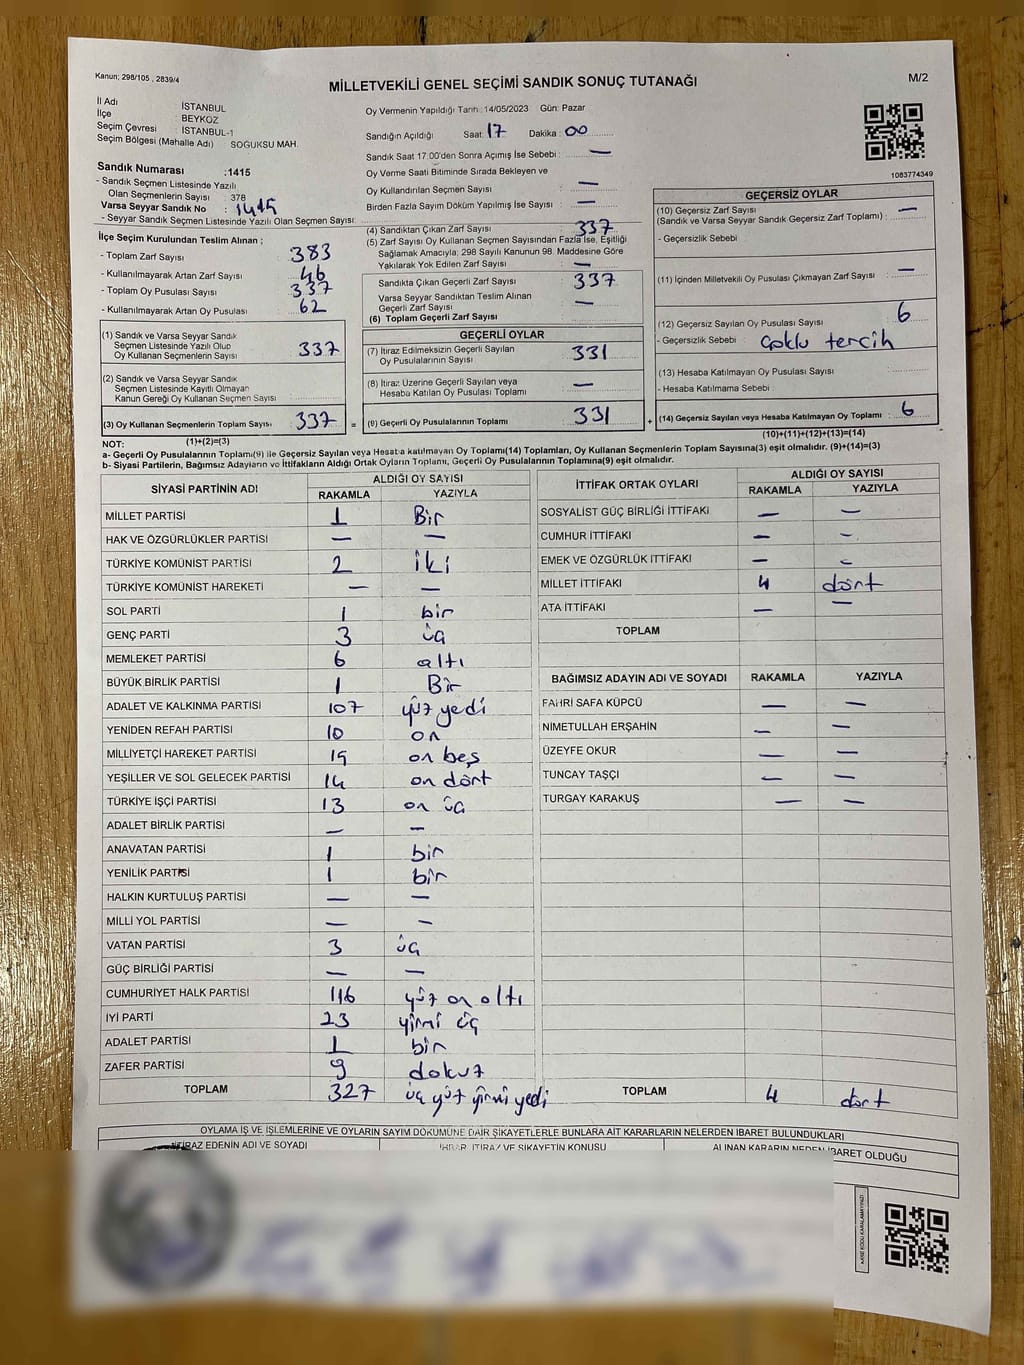 Kanun; 298/105 , 2839/4
MİLLETVEKİLİ GENEL SEÇİMİ SANDIK SONUÇ TUTANAĞI
M/2
İl Adı : İSTANBUL
İlçe : BEYKOZ
Seçim Çevresi : İSTANBUL-1
Seçim Bölgesi (Mahalle Adı) SOĞUKSU MAH.
Oy Vermenin Yapıldığı Tarih : 14/05/2023 Gün: Pazar
Sandığın Açıldığı Saat: 17 Dakika : 00
Sandık Saat 17:00'den Sonra Açımış İse Sebebi : —
Oy Verme Saati Bitiminde Sırada Bekleyen ve
Oy Kullandırılan Seçmen Sayısı : —
Birden Fazla Sayım Döküm Yapılmış İse Sayısı : —
1083774349
Sandık Numarası :1415
- Sandık Seçmen Listesinde Yazılı
Olan Seçmenlerin Sayısı : 378
Varsa Seyyar Sandık No : 1415
- Seyyar Sandık Seçmen Listesinde Yazılı Olan Seçmen Sayısı:
İlçe Seçim Kurulundan Teslim Alınan ;
- Toplam Zarf Sayısı : 383
- Kullanılmayarak Artan Zarf Sayısı : 46
- Toplam Oy Pusulası Sayısı : 337
- Kullanılmayarak Artan Oy Pusulası : 62
(1) Sandık ve Varsa Seyyar Sandık
Seçmen Listesinde Yazılı Olup
Oy Kullanan Seçmenlerin Sayısı : 337
(2) Sandık ve Varsa Seyyar Sandık
Seçmen Listesinde Kayıtlı Olmayan
Kanun Gereği Oy Kullanan Seçmen Sayısı :
(3) Oy Kullanan Seçmenlerin Toplam Sayısı : 337
(1)+(2)=(3)
(4) Sandıktan Çıkan Zarf Sayısı : 337
(5) Zarf Sayısı Oy Kullanan Seçmen Sayısından Fazla İse, Eşitliği
Sağlamak Amacıyla; 298 Sayılı Kanunun 98. Maddesine Göre
Yakılarak Yok Edilen Zarf Sayısı : —
Sandıkta Çıkan Geçerli Zarf Sayısı : 337
Varsa Seyyar Sandıktan Teslim Alınan
Geçerli Zarf Sayısı : —
(6) Toplam Geçerli Zarf Sayısı :
GEÇERLİ OYLAR
(7) İtiraz Edilmeksizin Geçerli Sayılan
Oy Pusulalarının Sayısı : 331
(8) İtiraz Üzerine Geçerli Sayılan veya
Hesaba Katılan Oy Pusulası Toplamı : —
=
(9) Geçerli Oy Pusulalarının Toplamı : 331
+
GEÇERSİZ OYLAR
(10) Geçersiz Zarf Sayısı
(Sandık ve Varsa Seyyar Sandık Geçersiz Zarf Toplamı) : —
- Geçersizlik Sebebi
(11) İçinden Milletvekili Oy Pusulası Çıkmayan Zarf Sayısı : —
(12) Geçersiz Sayılan Oy Pusulası Sayısı : 6
- Geçersizlik Sebebi : çoklu tercih
(13) Hesaba Katılmayan Oy Pusulası Sayısı :
- Hesaba Katılmama Sebebi :
(14) Geçersiz Sayılan veya Hesaba Katılmayan Oy Toplamı : 6
(10)+(11)+(12)+(13)=(14)
NOT:
a- Geçerli Oy Pusulalarının Toplamı(9) ile Geçersiz Sayılan veya Hesaba katılmayan Oy Toplamı(14) Toplamları, Oy Kullanan Seçmenlerin Toplam Sayısına(3) eşit olmalıdır. (9)+(14)=(3)
b- Siyasi Partilerin, Bağımsız Adayların ve İttifakların Aldığı Ortak Oyların Toplamı, Geçerli Oy Pusulalarının Toplamına(9) eşit olmalıdır.
SİYASİ PARTİNİN ADI ALDIĞI OY SAYISI
RAKAMLA YAZIYLA
MİLLET PARTİSİ 1 Bir
HAK VE ÖZGÜRLÜKLER PARTİSİ — —
TÜRKİYE KOMÜNİST PARTİSİ 2 iki
TÜRKİYE KOMÜNİST HAREKETİ — —
SOL PARTİ 1 bir
GENÇ PARTİ 3 üç
MEMLEKET PARTİSİ 6 altı
BÜYÜK BİRLİK PARTİSİ 1 Bir
ADALET VE KALKINMA PARTİSİ 107 yüz yedi
YENİDEN REFAH PARTİSİ 10 on
MİLLİYETÇİ HAREKET PARTİSİ 15 on beş
YEŞİLLER VE SOL GELECEK PARTİSİ 14 on dört
TÜRKİYE İŞÇİ PARTİSİ 13 on üç
ADALET BİRLİK PARTİSİ — —
ANAVATAN PARTİSİ 1 bir
YENİLİK PARTİSİ 1 bir
HALKIN KURTULUŞ PARTİSİ — —
MİLLİ YOL PARTİSİ — —
VATAN PARTİSİ 3 üç
GÜÇ BİRLİĞİ PARTİSİ — —
CUMHURİYET HALK PARTİSİ 116 yüz on altı
İYİ PARTİ 23 yirmi üç
ADALET PARTİSİ 1 bir
ZAFER PARTİSİ 9 dokuz
TOPLAM 327 üç yüz yirmi yedi
İTTİFAK ORTAK OYLARI ALDIĞI OY SAYISI
RAKAMLA YAZIYLA
SOSYALİST GÜÇ BİRLİĞİ İTTİFAKI — —
CUMHUR İTTİFAKI — —
EMEK VE ÖZGÜRLÜK İTTİFAKI — —
MİLLET İTTİFAKI 4 dört
ATA İTTİFAKI — —
TOPLAM
BAĞIMSIZ ADAYIN ADI VE SOYADI RAKAMLA YAZIYLA
FAHRİ SAFA KÜPCÜ — —
NİMETULLAH ERŞAHİN — —
ÜZEYFE OKUR — —
TUNCAY TAŞÇI — —
TURGAY KARAKUŞ — —
TOPLAM 4 dört
OYLAMA İŞ VE İŞLEMLERİNE VE OYLARIN SAYIM DÖKÜMÜNE DAİR ŞİKAYETLERLE BUNLARA AİT KARARLARIN NELERDEN İBARET BULUNDUKLARI
İTİRAZ EDENİN ADI VE SOYADI İHBAR, İTİRAZ VE ŞİKAYETİN KONUSU ALINAN KARARIN NEDEN İBARET OLDUĞU